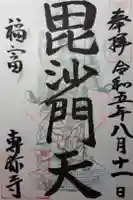 奉拝 令和五年八月十一日
毘沙門天
福富
専弥寺